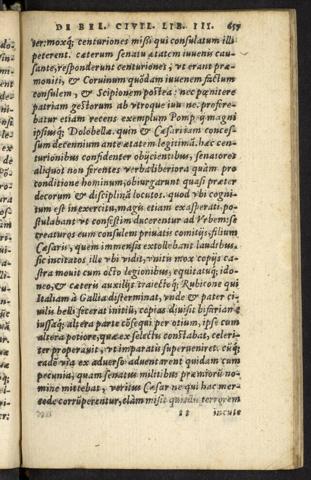 DE BEL. CIVIL. LIB. III. 659
ter: moxq; centuriones misit qui consulatum illi
peterent. cæterum senatu ætatem iuueni cau-
sante, responderunt centuriones, ut erant præ-
moniti, & Coruinum quõdam iuuenem factum
consulem, & Scipionem postea: nec pœnitere
patriam gestorum ab vtroque iuue ne. profere-
batur etiam recens exemplum Pomp. q magni
ipsiusq; Dolobellæ. quin & Cæsari iam conces-
sum decennium ante ætatem legitimã. hæc cen-
turionibus confidenter obijcientibus, senatores
aliquot non firentes verba liberiora quàm pro
conditione hominum, obiurgarunt quasi præter
decorum & disciplinã locutos. quod vbi cogni-
tum est in exercitu, magis etiam exasperati po-
stulabant vt confestim ducerentur ad Vrbem: se
creaturos eum consulem priuatis comitijs, filium
Cæsaris, quem immensis extollebant laudibus.
sic incitatos ille vbi vidit, vnitis mox copijs ca-
stra mouit cum octo legionibus, equitatuq; ido-
neo, & cæteris auxilijs. traiectoq; Rubicone qui
Italiam à Gallia disterminat, vnde & pater ci-
uilis belli fecerat initiũ, copias diuisit bifariam
iussaq; altera parte cõsequi per otium, ipse cum
altera potiore, quæ ex selectu constabat, celeri-
ter properauit, vt imparatis superueniret. cũq;
eadẽ via ex aduerso aduentarent quidam cum
pecunia, quam senatus militibus præmiorũ no-
mine mittebat, veritus Cæsar ne qui hac mer-
cede corrũperentur, clàm misit quosdã terrorem
incute